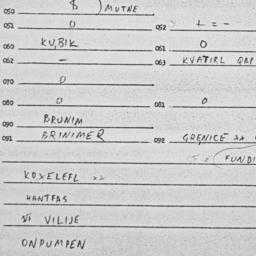 050 B ) MUTNE
051 0 052 + = -
060 KUBIK 061 0
062 - 063 KVATIRL
070 0
080 0 081 0
090 BRUNIM
091 BRINIMER 092 GRENICE xx
FUNDI
KOXELEFL xx
HANTFAS
VILIJE
ONPUMPEN